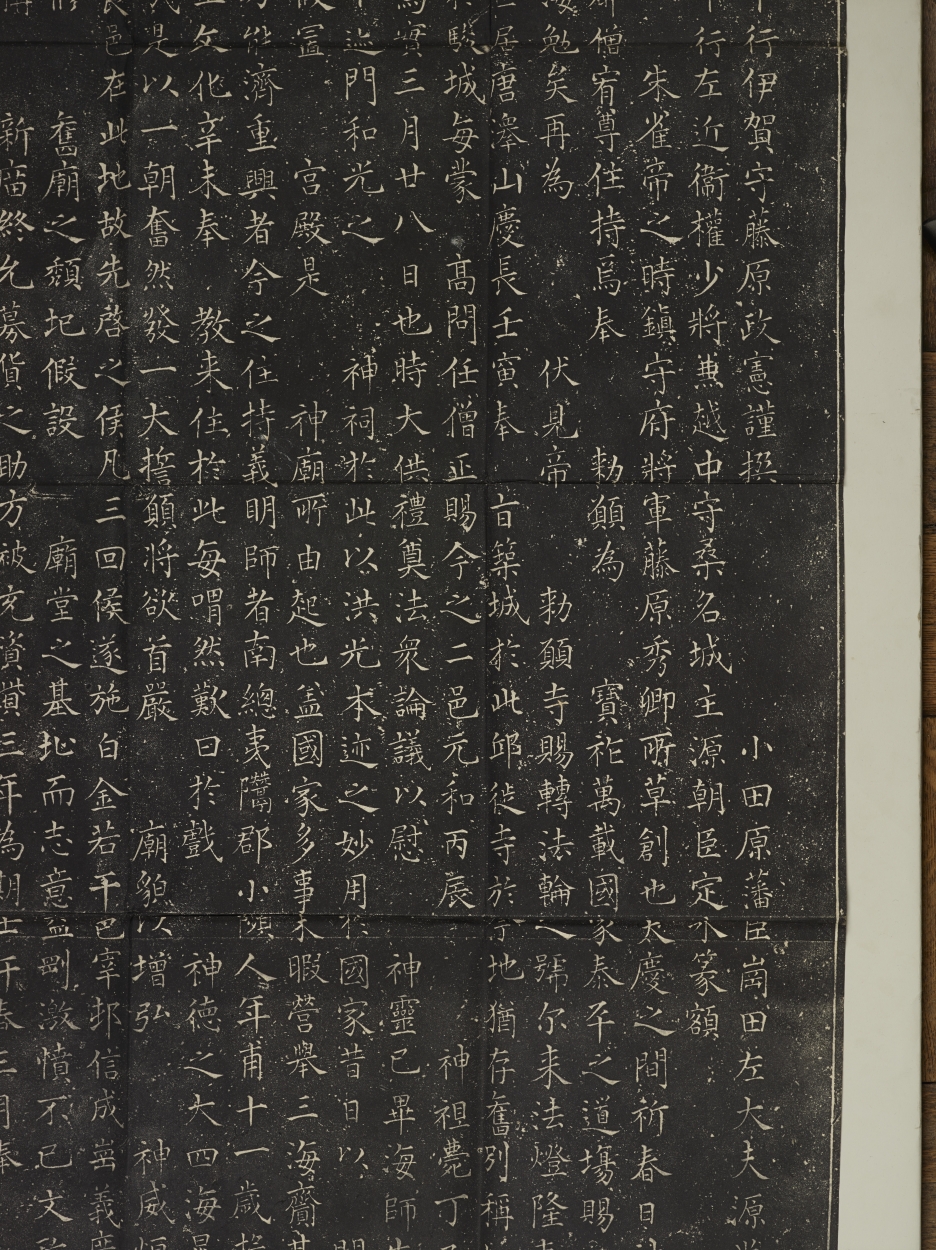 行伊賀守藤原政憲謹撰 小田原藩臣岡田左大夫源
行左近衞權少將兼越中守桑名城主源朝臣定永篆額
朱雀帝之時鎮守府將軍藤原秀卿所草創也大慶之間祈春日
僧宥尊住持焉奉 勅願為 寶祚萬載國家泰平之道塲賜
勉矣再為 伏見帝 勅願寺賜轉法輪之號尔来法燈隆
唐澤山慶長壬寅奉 旨築城於此邱徙寺於今地猶存舊別稱
駿城每蒙 高問任僧正賜今之二邑元和丙辰 神祖薨丁
實三月廿八日也時大供禮奠法衆論議以慰 神靈已畢海師
迩門和光之 神祠於此以洪光本迹之妙用於國家昔日以
宮殿是 神廟所由起也盖國家多事未暇營舉三海齎
能濟重興者今之住持義明師者南總夷隅郡小隅人年甫十一歲
文化辛未奉 教来住於此每喟然歎曰於戲 神德之大四海
是以一朝奮然發一大誓願將欲首嚴 廟貌以增弘 神威
邑在此地故先啓之侯凡三回候遂施白金若干邑宰邦信成豈義
舊廟之頹圮假設 廟堂之基址而志意益剛激憤不已文
新庿終允募貨之助方被充資貲三年為期壬午春三月奉